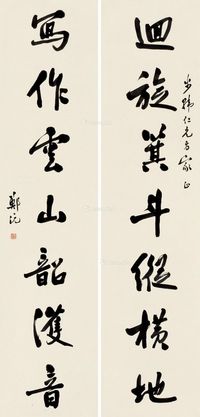 迴旋箕斗縱横地
步韩仁兄方家正
寫作雲山韶濩音
鄭沅